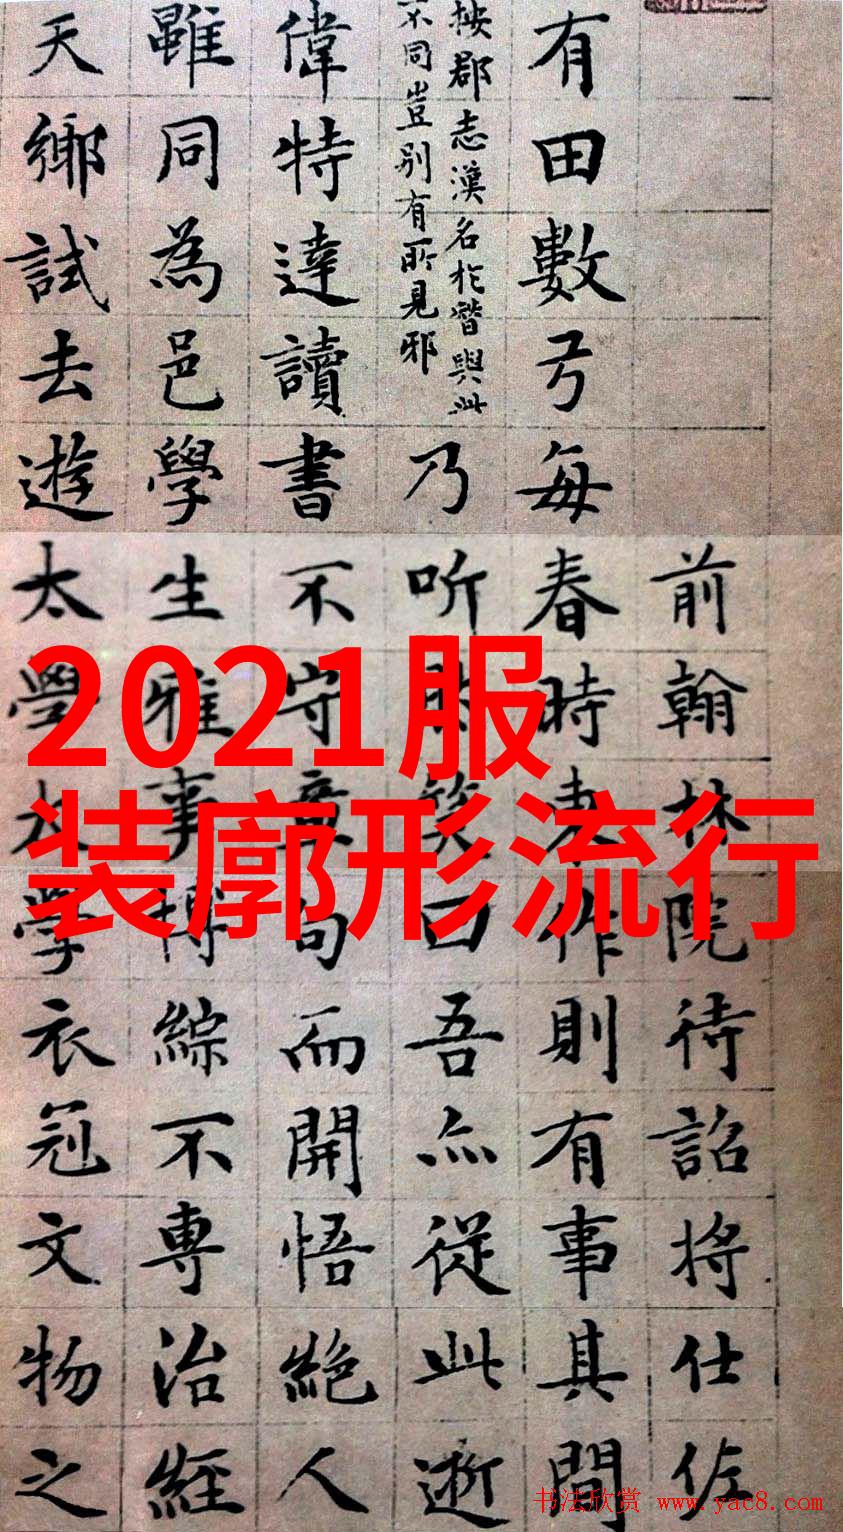 2021服
装廓形流行
前翰林院待詔將仕佐
有田數弓每春時東作則有事其間
按郡志漢名與此
不同豈别有所見邪
乃听然笑曰吾亦從此逝
偉特達讀書不守章句而開悟絕人
雖同為邑學生雅事博綜不專治經
天鄉試去遊太學太學衣冠文物之
书法欣赏 www.yac8.com